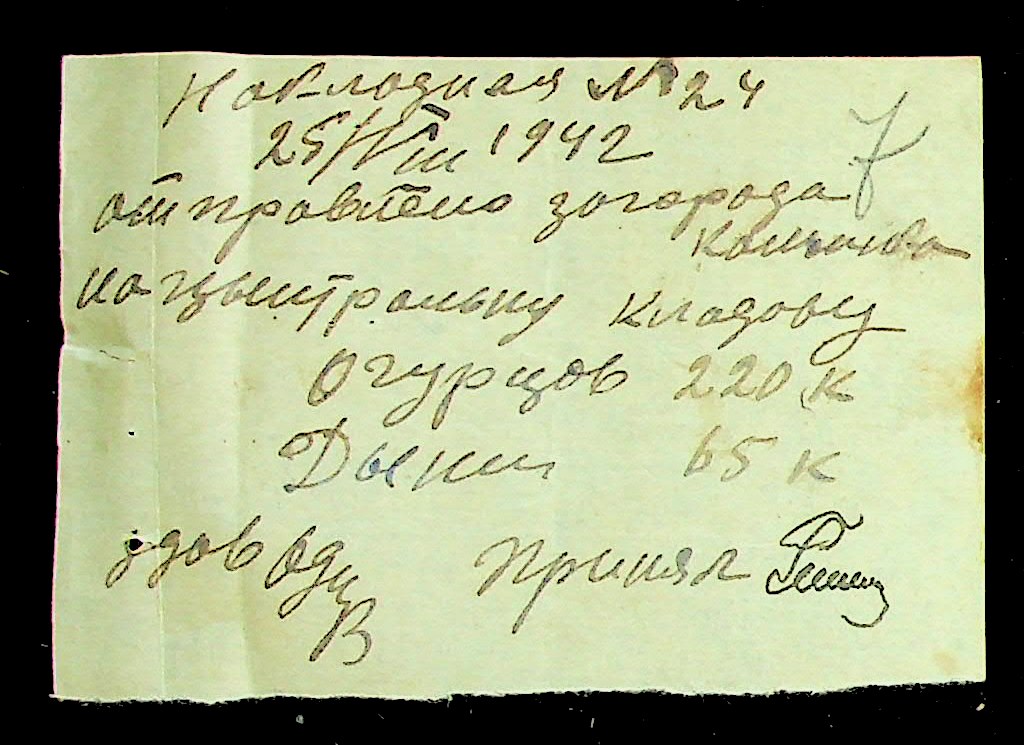 Накладная № 24
25/VIII 1942
7
отправлено загорода
на цынтральну кладову
Огурцов 220 к
Дыни 65 к
здов Принял